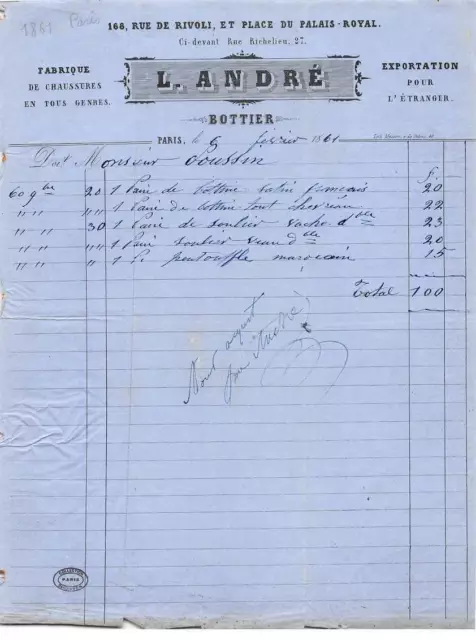 1861 Paris
168, RUE DE RIVOLI, ET PLACE DU PALAIS-ROYAL.
Ci-devant Rue Richelieu, 27.
FABRIQUE
DE CHAUSSURES
EN TOUS GENRES.
L. ANDRÉ
EXPORTATION
POUR
L'ÉTRANGER.
BOTTIER
PARIS, le 6 février 1861
Doit Monsieur Poussin
f.
60 9bre 20 1 Paire de bottine satin français 20
" " " " 1 Paire de bottine tout chevreau 22
" " 30 1 Paire de soulier vache dble 23
" " " " 1 Paire soulier veau dble 20
" " " 1 P. pentouffle marocain 15
Total 100
Pour acquit
André
PARIS